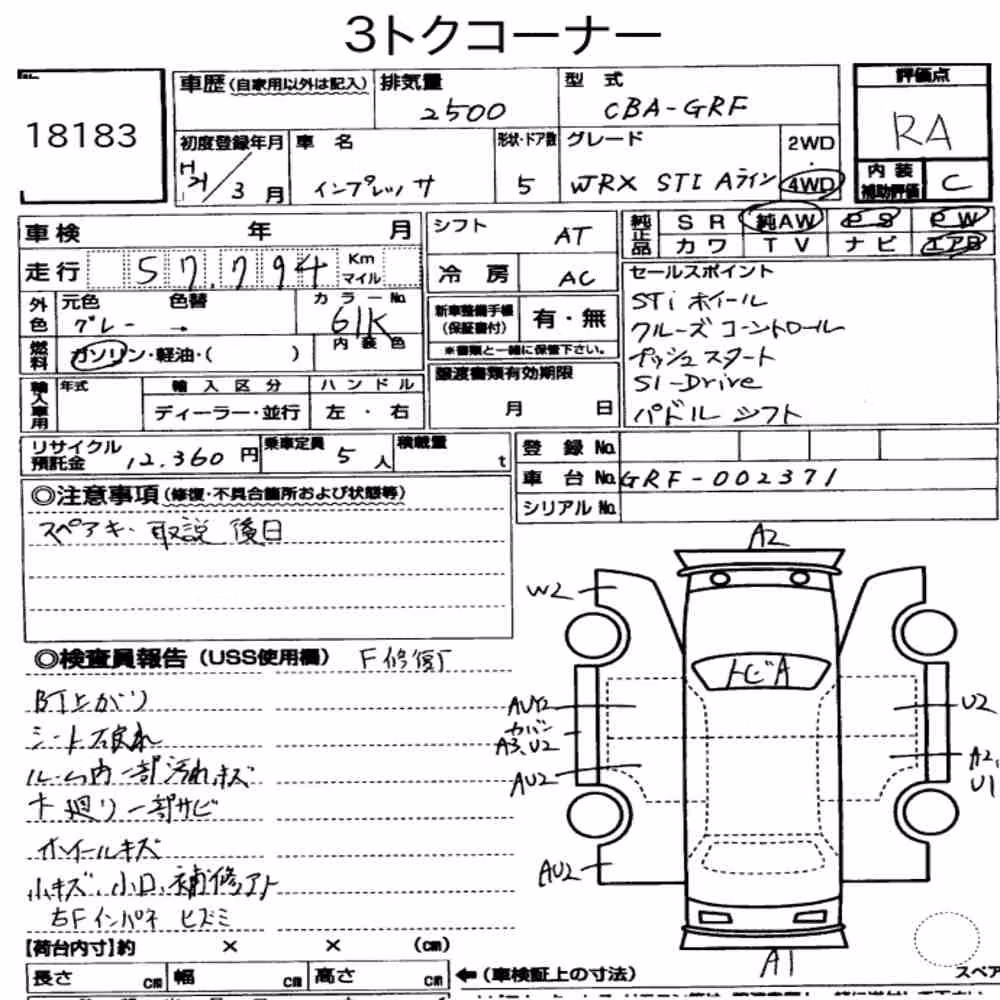 3トクコーナー
18183
車歴(自家用以外は記入)
排気量
2500
型 式
CBA-GRF
評価点
RA
初度登録年月
H21/3月
車 名
インプレッサ
形状・ドア数
5
グレード
WRX STI Aライン
2WD
・
4WD
内 装
補助評価
C
車検 年 月
シフト
AT
純正品
SR 純AW PS PW
カワ TV ナビ エアB
走行 57,794 Km マイル
冷 房
AC
セールスポイント
STi ホイール
クルーズコントロール
プッシュスタート
SI-Drive
パドルシフト
外色
元色 色替
グレー →
カラーNo.
61K
新車整備手帳
(保証書付)
有・無
※書類と一緒に保管下さい。
燃料
ガソリン・軽油・( )
内装色
譲渡書類有効期限
月 日
輸入車用
年式
輸入区分
ディーラー・並行
ハンドル
左・右
リサイクル
預託金
12,360円
乗車定員
5人
積載量
t
登 録 No.
車 台 No.
GRF-002371
シリアル No.
◎注意事項(修復・不具合箇所および状態等)
スペアキ・取説 後日
◎検査員報告(USS使用欄) F修復
BT上がり
シート不良れ
ルーム内一部汚れキズ
下廻り一部サビ
ホイールキズ
小キズ、小凹、補修アト
右Fインパネ ヒズミ
A2
W2
トビA
AU2
カバン
A3、U2
AU2
AU2
U2
A2,
U1
A1
【荷台内寸】約 × × (cm)
長さ cm 幅 cm 高さ cm
←(車検証上の寸法)
スペア